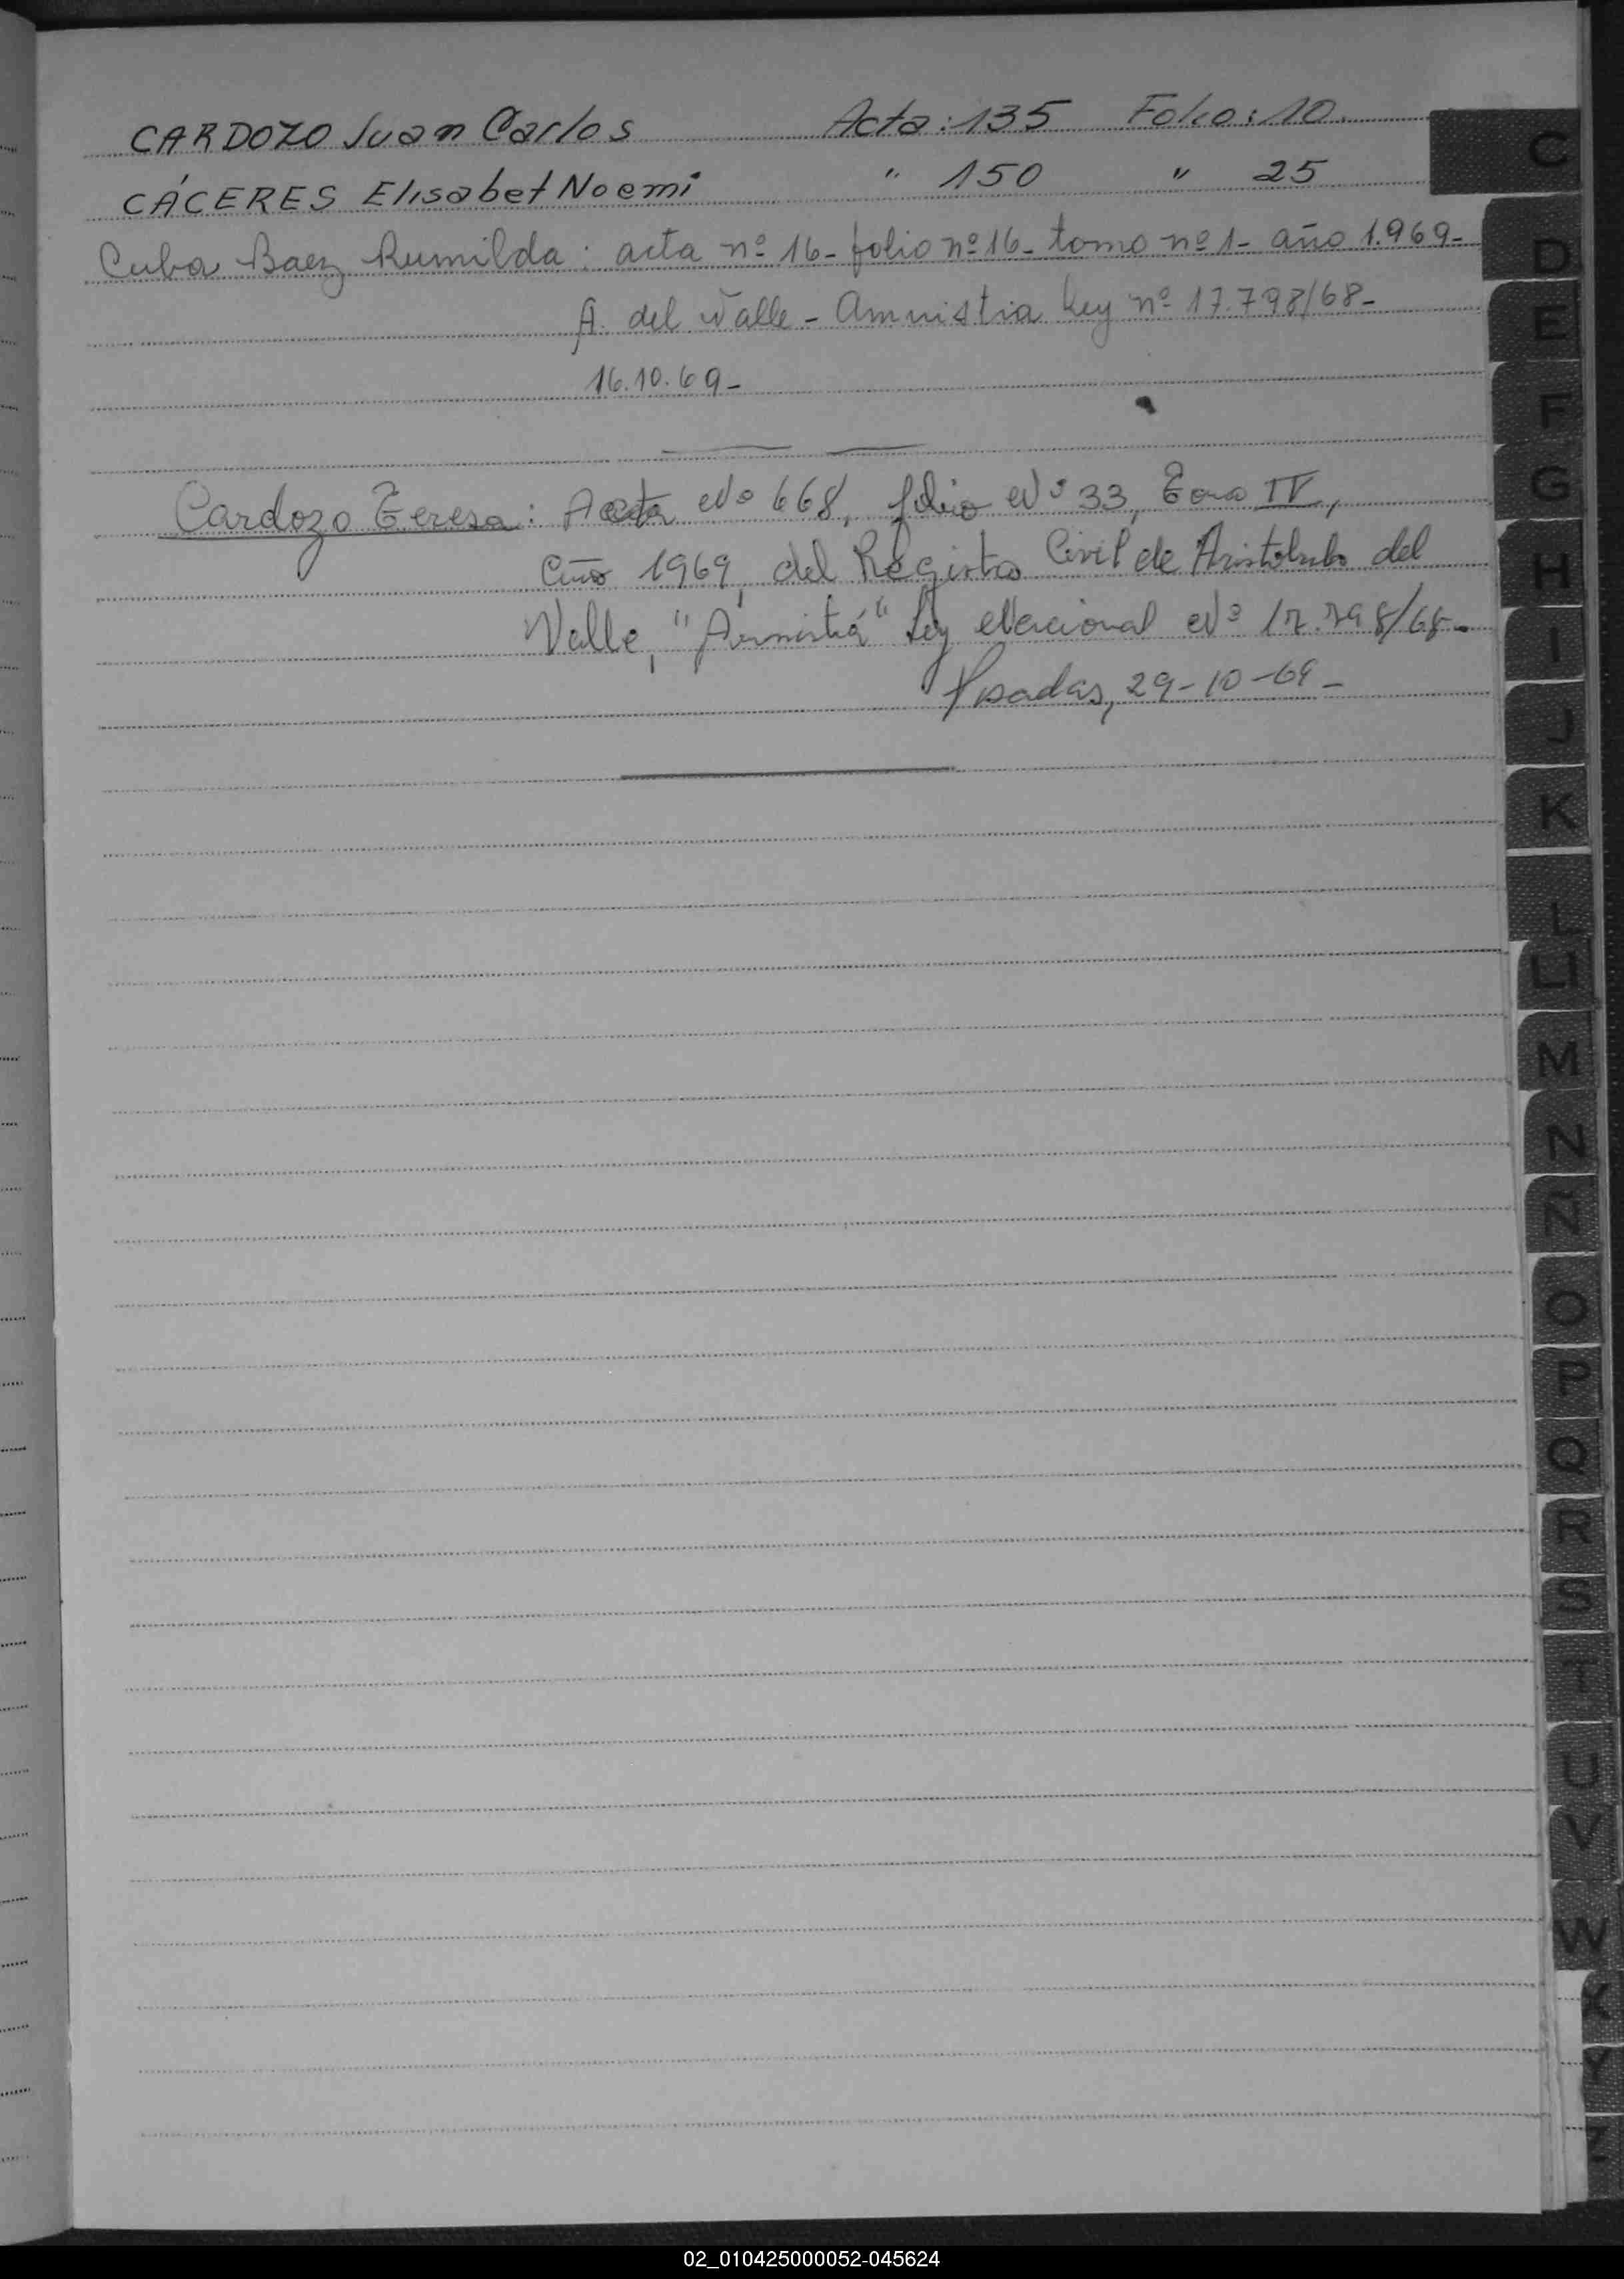 CARDOZO Juan Carlos Acta: 135 Folio: 10.
CÁCERES Elisabet Noemi " 150 " 25
Cuba Baez Rumilda: acta nº 16- folio nº 16- tomo nº 1- año 1.969-
A. del Valle - Amnistia Ley nº 17.798/68-
16.10.69-
Cardozo Teresa: Acta Nº 668, folio Nº 33, Tomo IV,
año 1969, del Registro Civil de Aristobulo del
Valle, "Amnistia" Ley Nacional Nº 17.798/68-
Posadas, 29-10-69-
C
D
E
F
G
H
I
J
K
L
LL
M
N
Ñ
O
P
Q
R
S
T
U
V
W
X
Y
Z
02_010425000052-045624